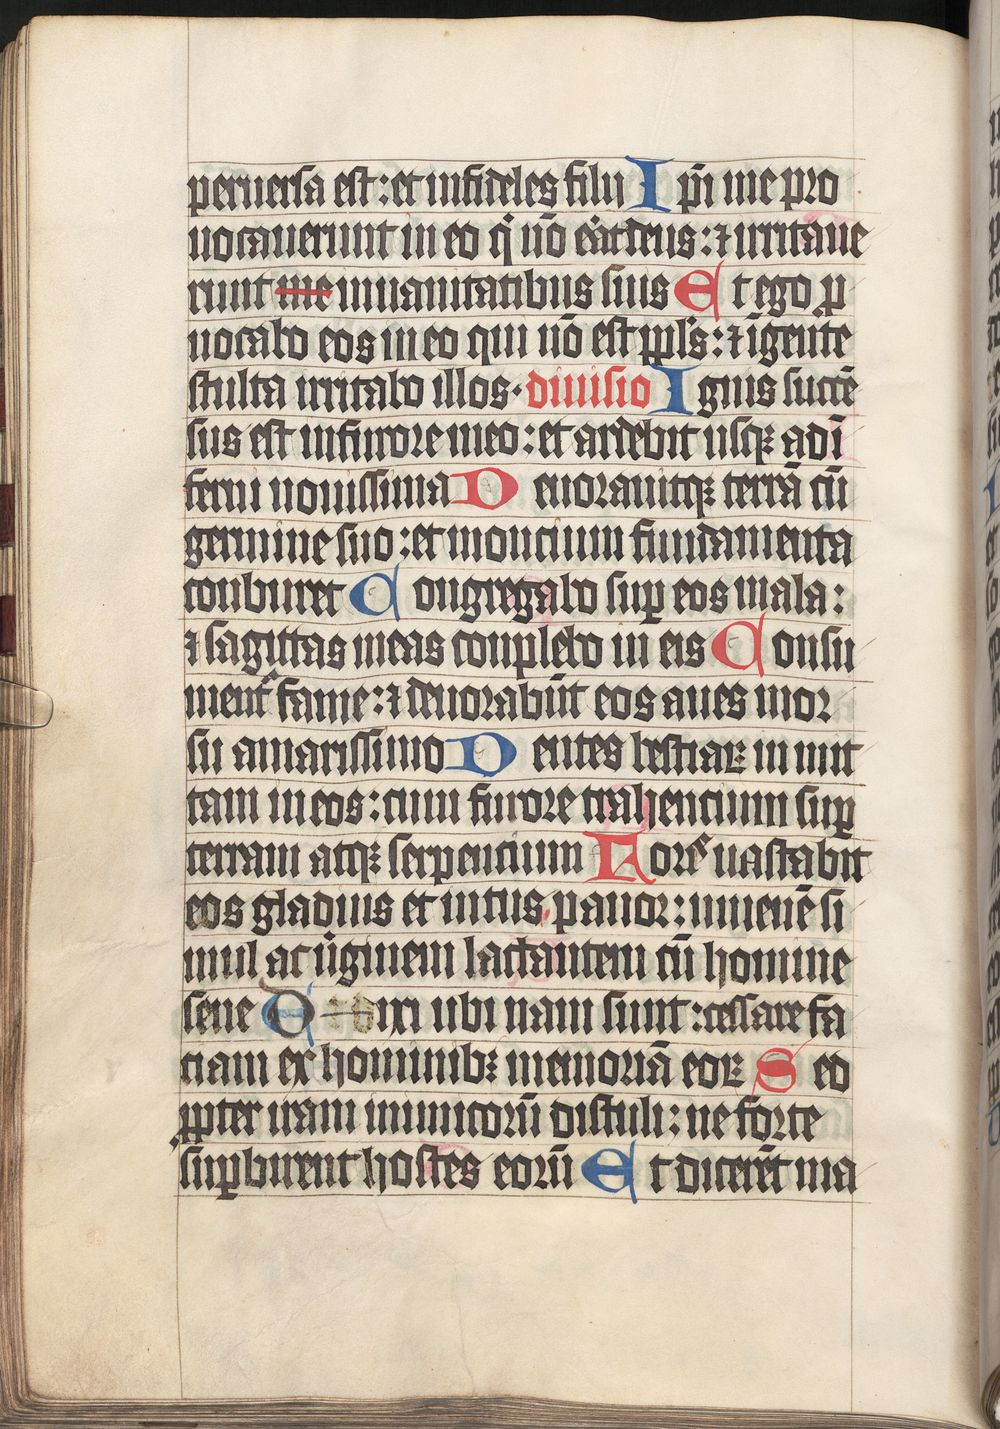 peruersa est: et infideles filij Ipi me pro
uocauerunt in eo q̇ nō eat deus: ⁊ irritaue
runt me in uanitatibus suis Et ego ꝑ
uocabo eos in eo qui nō est ppl's: ⁊ ī gente
stulta irritabo illos· diuisio Ignis succē
sus est in furore meo: et ardebit usqꝫ ad ī
ferni nouissima Deuorauitqꝫ terrā cū
germine suo: et moncium fundamenta
conburet Congregabo suꝑ eos mala:
⁊ sagittas meas conplebo in eis Consu
ment᷑ fame: ⁊ deuorabūt eos aues mor
su amarissimo Dentes bestiaꝝ in mit
tam in eos: cum furore trahencium suꝑ
terram atqꝫ serpencium Foris uastabit
eos gladius et intus pauor: iuuenē si
mul ac ūginem lactantem cū homine
sene Dixi ubi nam sunt: cessare fa
ciam ex hominibꝫ memoriā eoꝝ Sed
ꝓpter iram inimicorū distuli: ne forte
suꝑbirent hostes eorū Et dicerēt ma